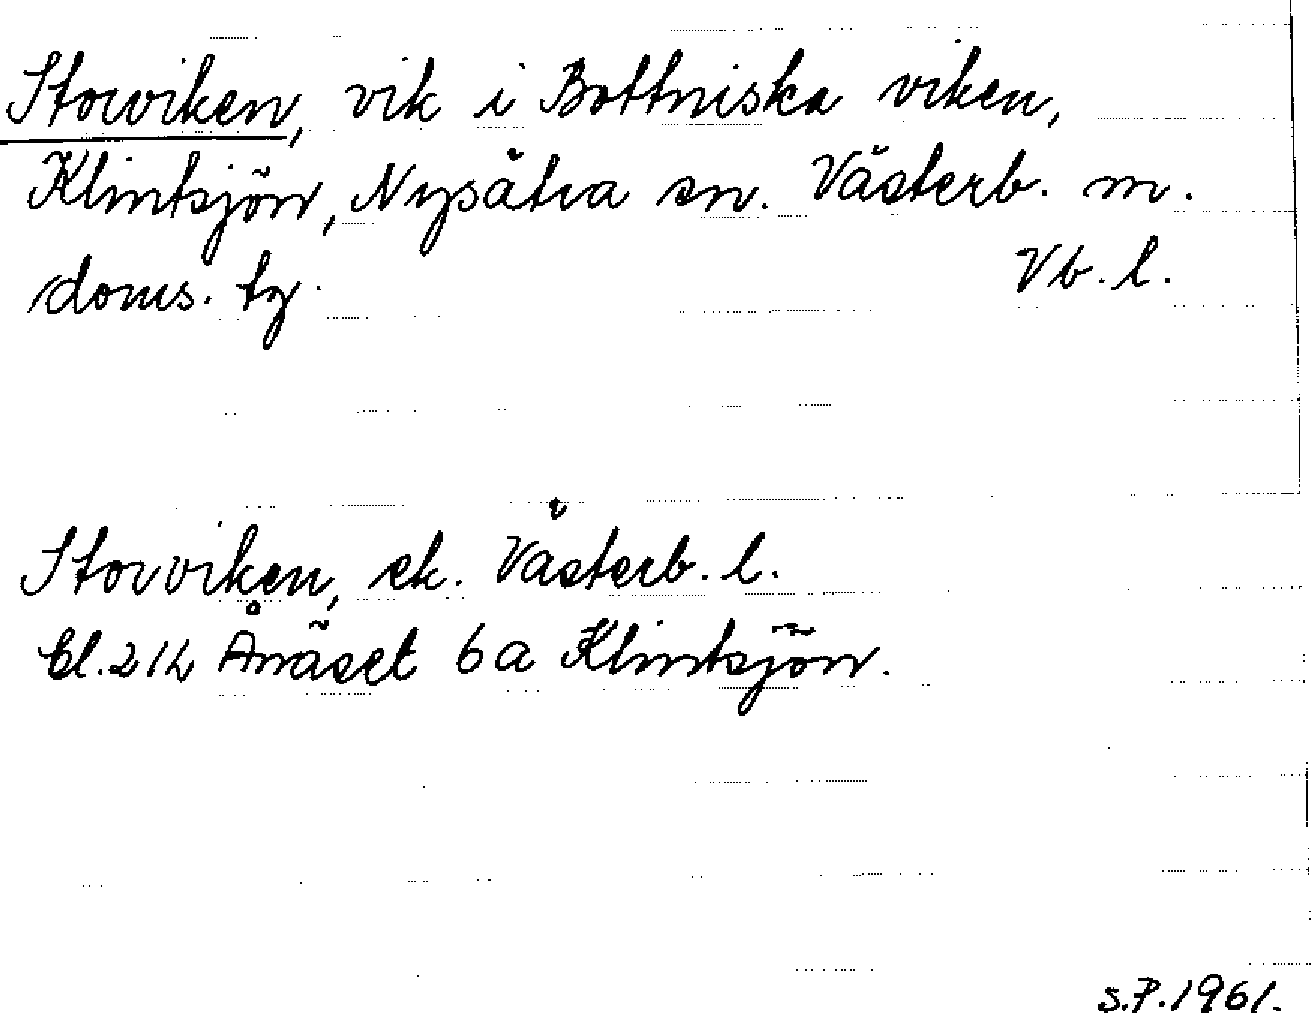 Storviken, vik i Bottniska viken,
Klintsjön, Nysätra sn. Västerb. m.
doms. tg. Vb. l.
Storviken, ek. Västerb. l.
Bl. 21h Ånäset 6a Klintsjön.
S.P. 1961.